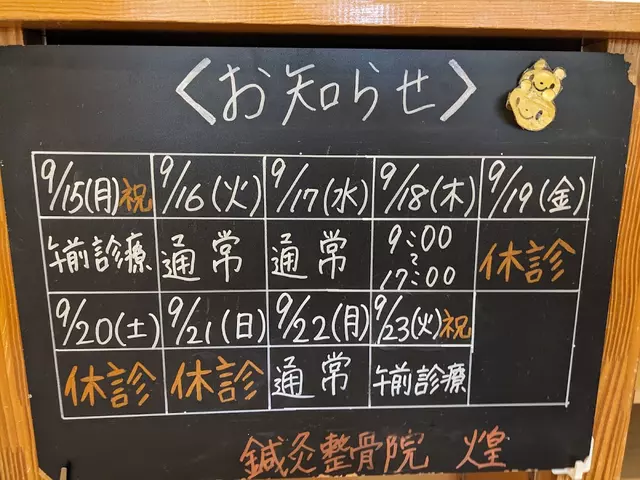 〈お知らせ〉
9/15(月)祝 9/16(火) 9/17(水) 9/18(木) 9/19(金)
午前診療 通常 通常 9:00〜17:00 休診
9/20(土) 9/21(日) 9/22(月) 9/23(火)祝
休診 休診 通常 午前診療
鍼灸整骨院 煌